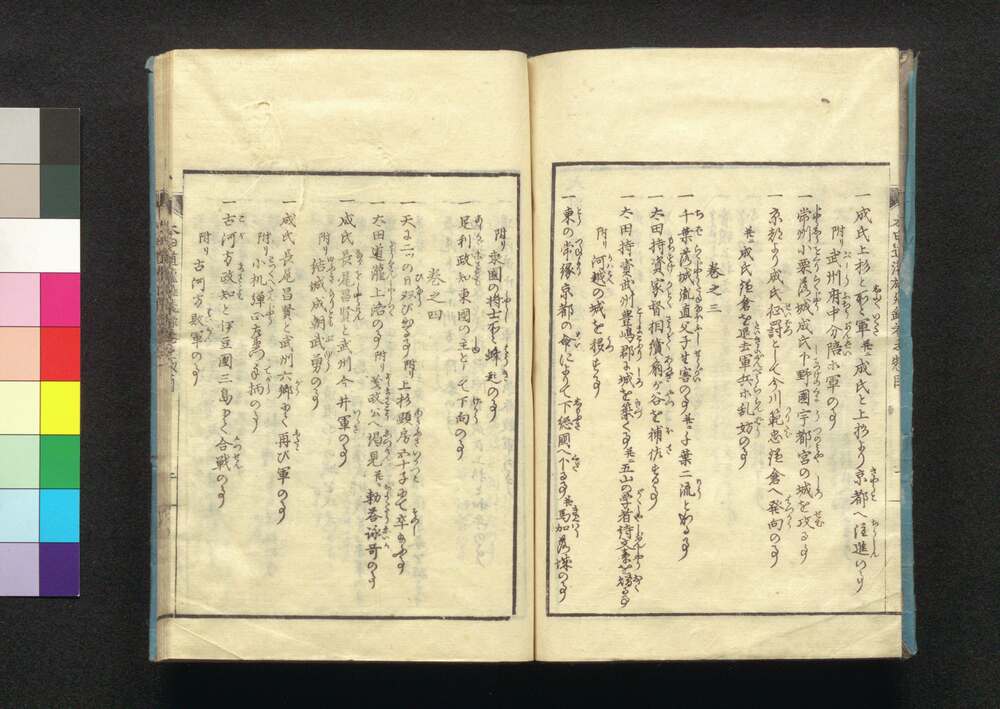 一 成氏上杉とわく軍 并 成氏と上杉より京都へ注進の事
附り 武州府中分陪の軍の事
一 常州小栗落城成氏下野国宇都宮の城を攻る事
一 京都より成氏征罸として今川範忠鎌倉へ発向の事
并 成氏鎌倉を退去軍兵乱妨の事
巻之三
一 千葉落城胤直父子生害の事 并 千葉二流とわる事
一 太田持資家督相續扇ヶ谷を補佐する事
一 太田持資武州豊嶋郡に城を築く事 并 五山の学者詩文を
附り 河越の城を
一 東の常縁京都の命によりて下総国へ下る事 并 馬加落城の事
附り 東國の將士の事
一 足利政知東國の主として下向の事
巻之四
一 天に二つの日双び出る事 附り 上杉顕房五十子にて卒の事
一 太田道灌上洛の事 附り 義政公へ謁見 并 勅答詠哥の事
一 成氏長尾昌賢と武州今井軍の事
附り 結城成朝武勇の事
一 成氏長尾昌賢と武州六郷にて再び軍の事
附り 小机弾正左衛門手柄の事
一 古河方政知と伊豆國三島にて合戦の事
附り 古河方敗軍の事